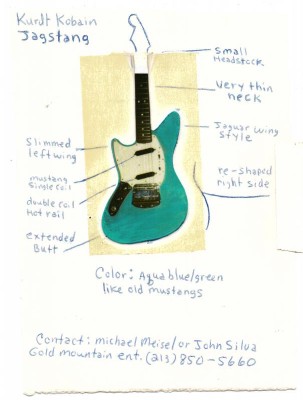 Kurdt Kobain
Jagstang
small
Headstock
very thin
neck
Jaguar wing
style
Slimmed
left wing
mustang
single coil
double coil
Hot rail
re-shaped
right side
extended
Butt
Color: Aqua blue/green
like old mustangs
Contact: michael Meisel or John Silva
Gold mountain ent. (213) 850-5660